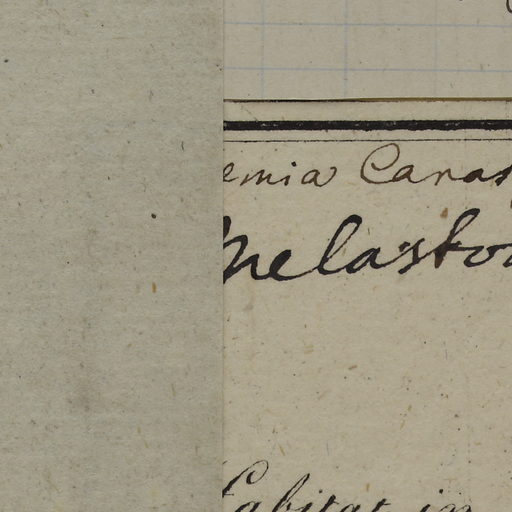 emia Canas
Melasto
habitat in